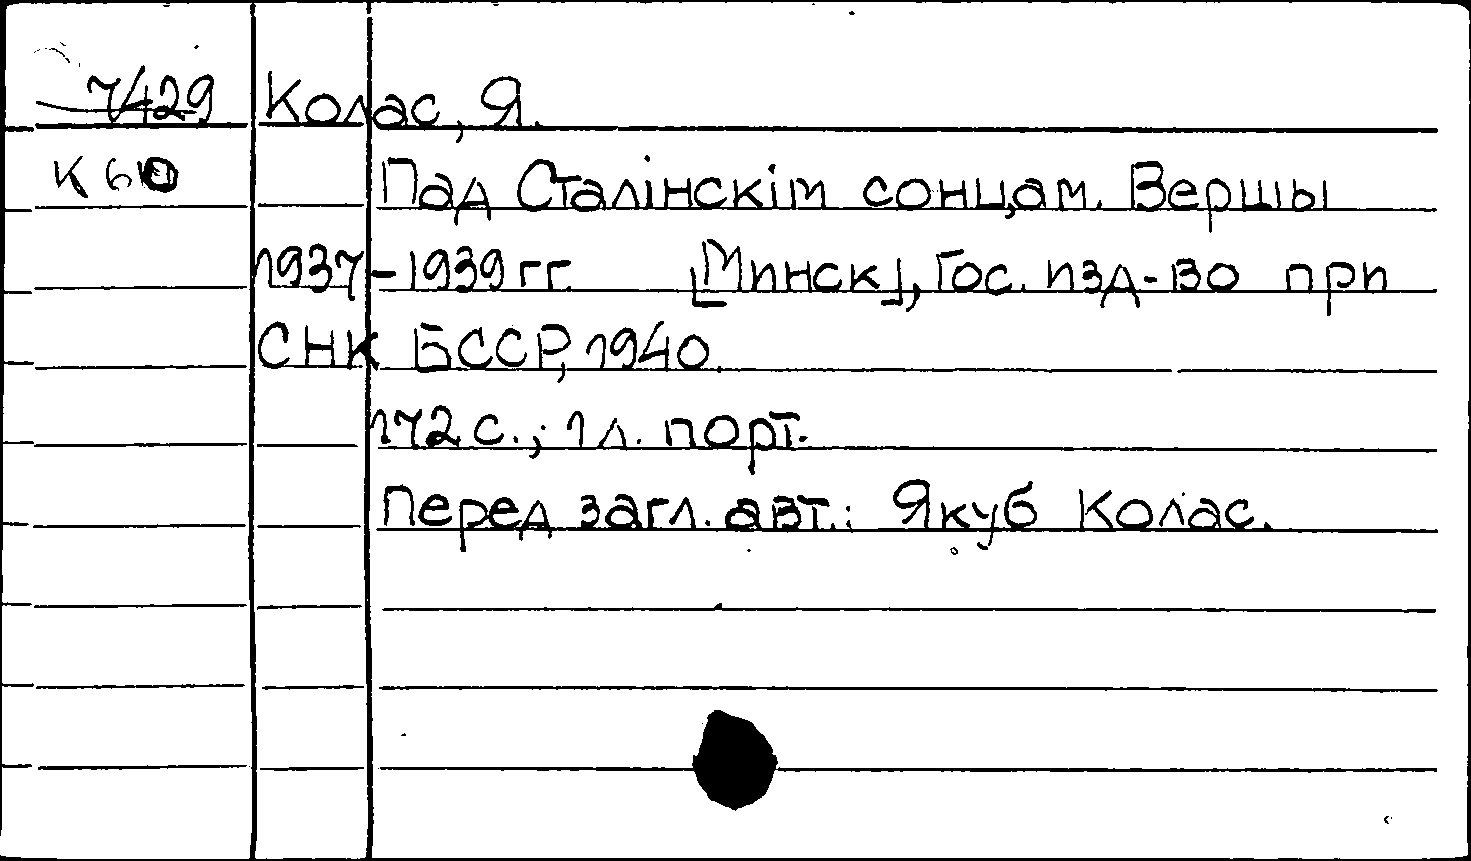 7/429 Колас, Я.
К 60 Пад Сталінскім сонцам. Вершы
1937-1939 гг. [Минск], Гос. изд-во при
СНК БССР, 1940.
172 с.; 1 л. порт.
Перед загл. авт.: Якуб Колас.